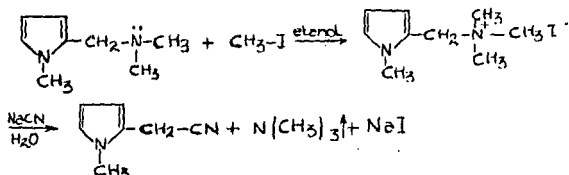 CH₂-N̈-CH₃ + CH₃-I etanol CH₂-N⁺-CH₃ I⁻
N CH₃ CH₃ N CH₃ CH₃
CH₃ CH₃
NaCN
H₂O CH₂-CN + N(CH₃)₃↑ + NaI
N
CH₃